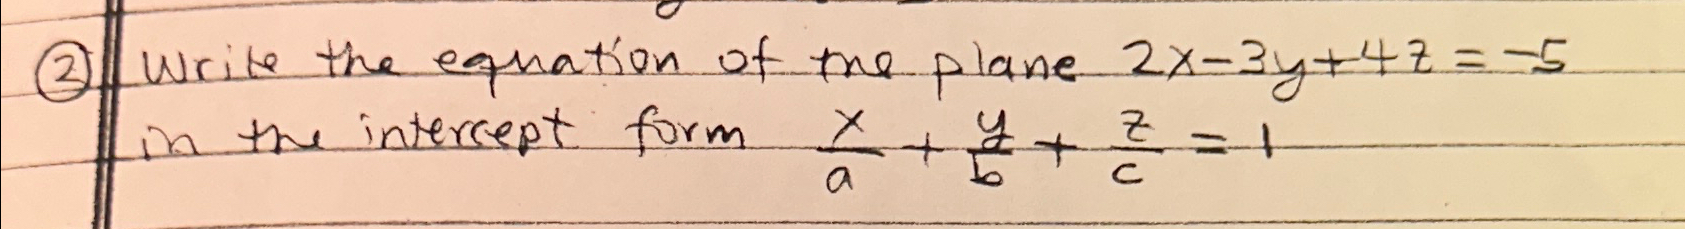 ② Write the equation of the plane 2x-3y+4z=-5
in the intercept form x/a + y/b + z/c = 1